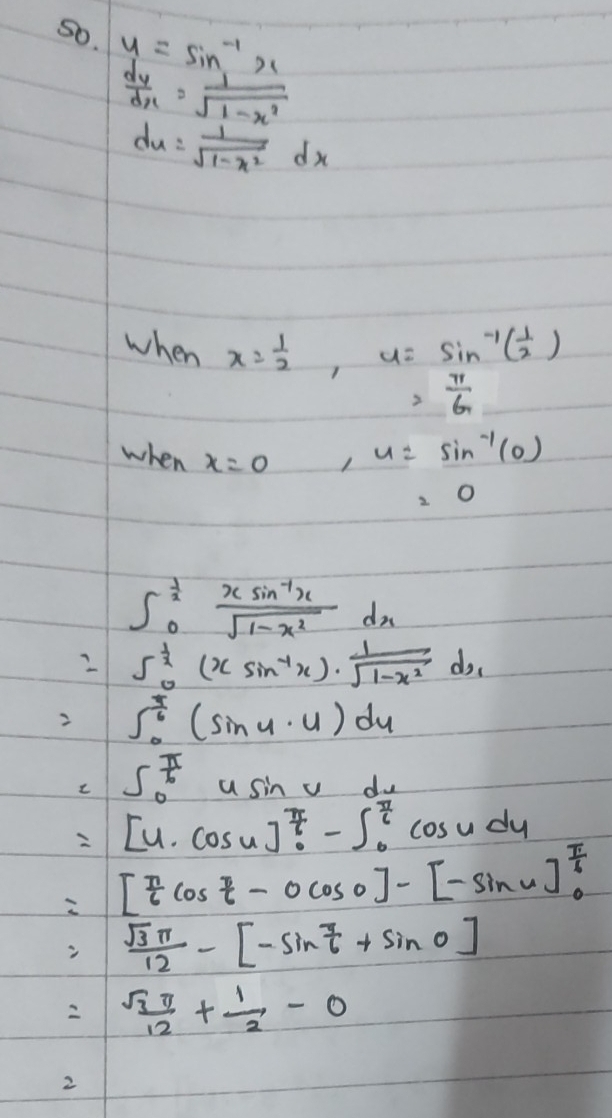 50. u = sin⁻¹ x
du/dx = 1/√(1-x²)
du = 1/√(1-x²) dx
When x = 1/2 , u = sin⁻¹(1/2)
= π/6
when x = 0 , u = sin⁻¹(0)
= 0
∫₀^(1/2) x sin⁻¹x / √(1-x²) dx
= ∫₀^(1/2) (x sin⁻¹x) · 1/√(1-x²) dx
= ∫₀^(π/6) (sin u · u) du
= ∫₀^(π/6) u sin u du
= [u · cos u]₀^(π/6) - ∫₀^(π/6) cos u du
= [π/6 cos π/6 - 0 cos 0] - [-sin u]₀^(π/6)
= √3 π/12 - [-sin π/6 + sin 0]
= √3 π/12 + 1/2 - 0
=